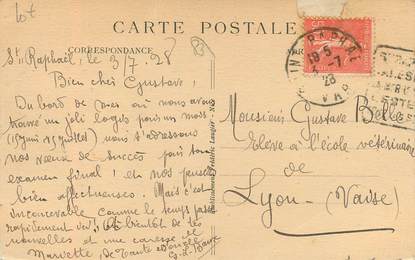 CARTE POSTALE
CORRESPONDANCE
St Raphaël, le 3/7.28
Bien cher Gustave,
Du bord de mer où nous avons
trouvé un joli logis pour un mois
(15 juin 15 juillet) nous t'adressons
nos vœux de succès pour ton
examen final ! et nos pensées
bien affectueuses. Mais c'est
inconcevable comme le temps passe
rapidement bientôt de tes
nouvelles et une caresse
de Tante
Monsieur Gustave
Elève à l'école vétérinaire
de
Lyon - (Vaise)
RAPHAEL
19 5
-7
28
VAR